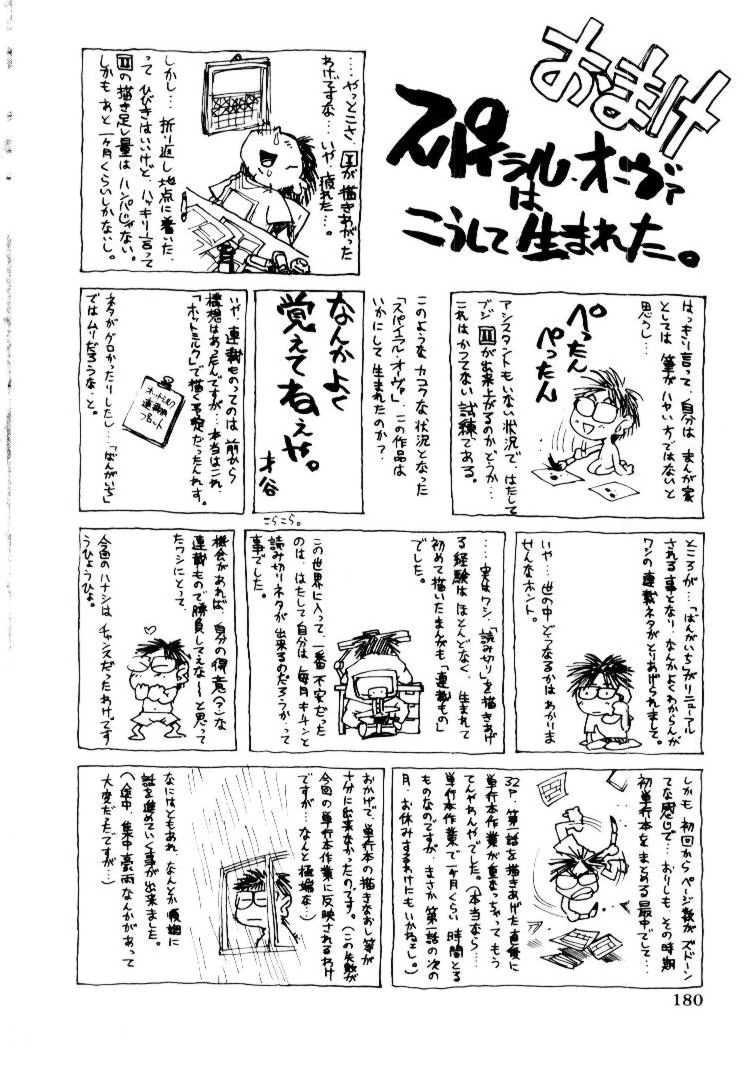 おまけ
スパイラル・オーヴァ
は
こうして生まれた。
……やっとこさ、Ⅰが描きあがった
わけですな…いや、疲れた…。
しかし…折り返し地点に着いた、
って ひびきはいいけど、ハッキリ言って
Ⅱの描き足し量は ハンパじゃない。
しかも あと一ヶ月くらいしかないし。
はっきり言って、自分は まんが家
としては 筆が ハヤい方ではないと
思うし…
ぺったん
ぺったん
アシスタントもいない状況で、はたして
ブジ Ⅱが出来上がるのかどうか…
これは かつてない試練である。
このような カコクな状況となった
「スパイラル・オーヴァ」、この作品は
いかにして 生まれたのか？
なんかよく
覚えてねぇや。
才谷
こらこら。
いや、連載ものってのは 前から
構想はあったんですが…本当はこれ、
「ホットミルク」で描く予定だったんです。
ホットミルク
連載用
プロット
ネタがゲロかったりしたし…「ばんがいち」
ではムリだろうな、と。
ところが…「ばんがいち」がリニューアル
される事となり、なんかよくわからんが
ワシの連載ネタがとりあげられました。
いや…世の中 どうなるかは わかりま
せんな ホント。
……実はワシ、「読み切り」を描きあげ
る経験は ほとんどなく、生まれて
初めて描いたまんがも「連載もの」
でした。
この世界に入って、一番不安だった
のは、はたして自分は 毎月キチンと
読み切りネタが出来るのだろうかって
事でした。
機会があれば、自分の得意(？)な
連載もので勝負してえな〜と思って
たワシにとって、
今回のハナシは チャンスだったわけです
うひょうひょ。
しかも 初回からページ数が ズドーン
てな感じで…おりしも その時期
初単行本をまとめる最中でして…
32P、第一話を描きあげた直後に
単行本作業が重なっちゃって もう
てんやわんやでした。(本当なら…
単行本作業で一ヶ月くらい 時間とる
ものなのですが、まさか 第一話の次の
月、お休みするわけにもいかねェし。)
おかげで、単行本の描きなおし等が
十分に出来なかったのです。(この失敗が
今回の単行本作業に反映されるわけ
ですが…なんと極端な…)
なにはともあれ なんとか 順調に
話を進めていく事が出来ました。
(途中、集中豪雨なんかがあって
大変だったですが…)
180